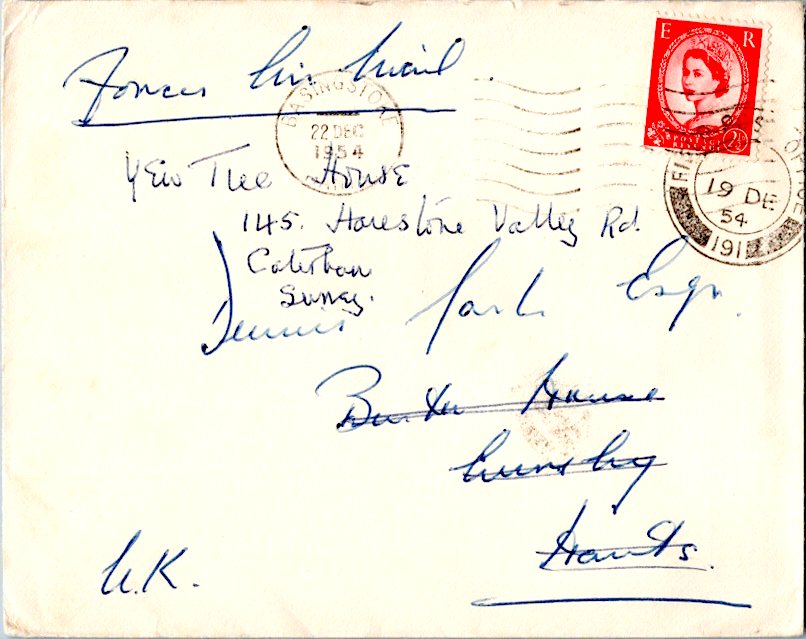 Forces Air Mail
E R
POSTAGE
2½
BASINGSTOKE
22 DEC
1954
FIELD POST OFFICE
19 DE
54
191
Yew Tree House
145. Harestone Valley Rd.
Caterham
Surrey.
Dennis Esqr.
House
Hants.
U.K.